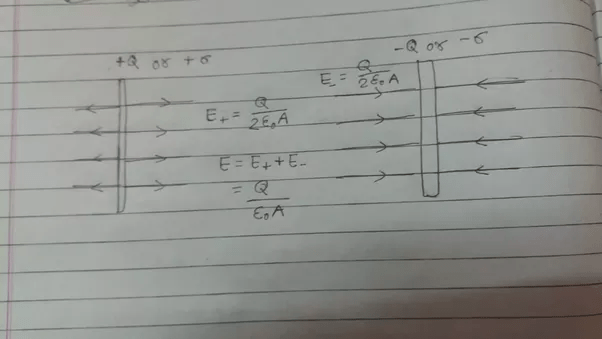 +Q or +σ
-Q or -σ
E₋ = Q/2ε₀A
E₊ = Q/2ε₀A
E = E₊ + E₋
= Q/ε₀A